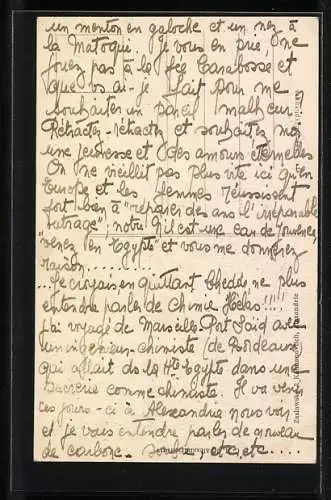 un menton en galoche et un nez à
la Matoqui. je vous en prie, ne
jouez pas à la fée Carabosse et
que vous ai-je fait pour me
souhaiter un pareil malheur
Rétractez-rétractez et souhaitez moi
une jeunesse et des amours éternelles
On ne vieillit pas plus vite ici qu'en
Europe et les femmes réussissent
fort bien à "réparer des ans l'irréparable
outrage", notre Nil est une eau de Jouvence,
"venez en Egypte" et vous me donnerez
raison............
...Je croyais en quittant Chedde ne plus
entendre parler de Chimie Hélas!!!!
j'ai voyagé de Marseille Port Saïd avec
un ingénieur-chimiste (de Bordeaux
qui allait ds la Hte Egypte dans une
sucrerie comme chimiste. Il va venir
ces jours-ci à Alexandrie nous voir
et je vais entendre parler de nouveau
de carbone, etc, etc.....